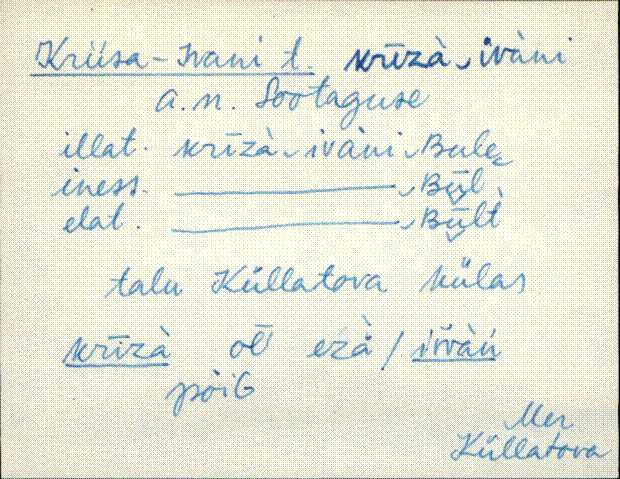 Kriisa-Ivani t. krīzà-ivàni
a.n. Sootaguse
illat. krīzà-ivàni-Bule
iness. ————— -Būl
elat. ————— -Būlt
talu Küllatova külas
krīzà ol̄ ezà / ivvàń
pòiG
Mer
Küllatova